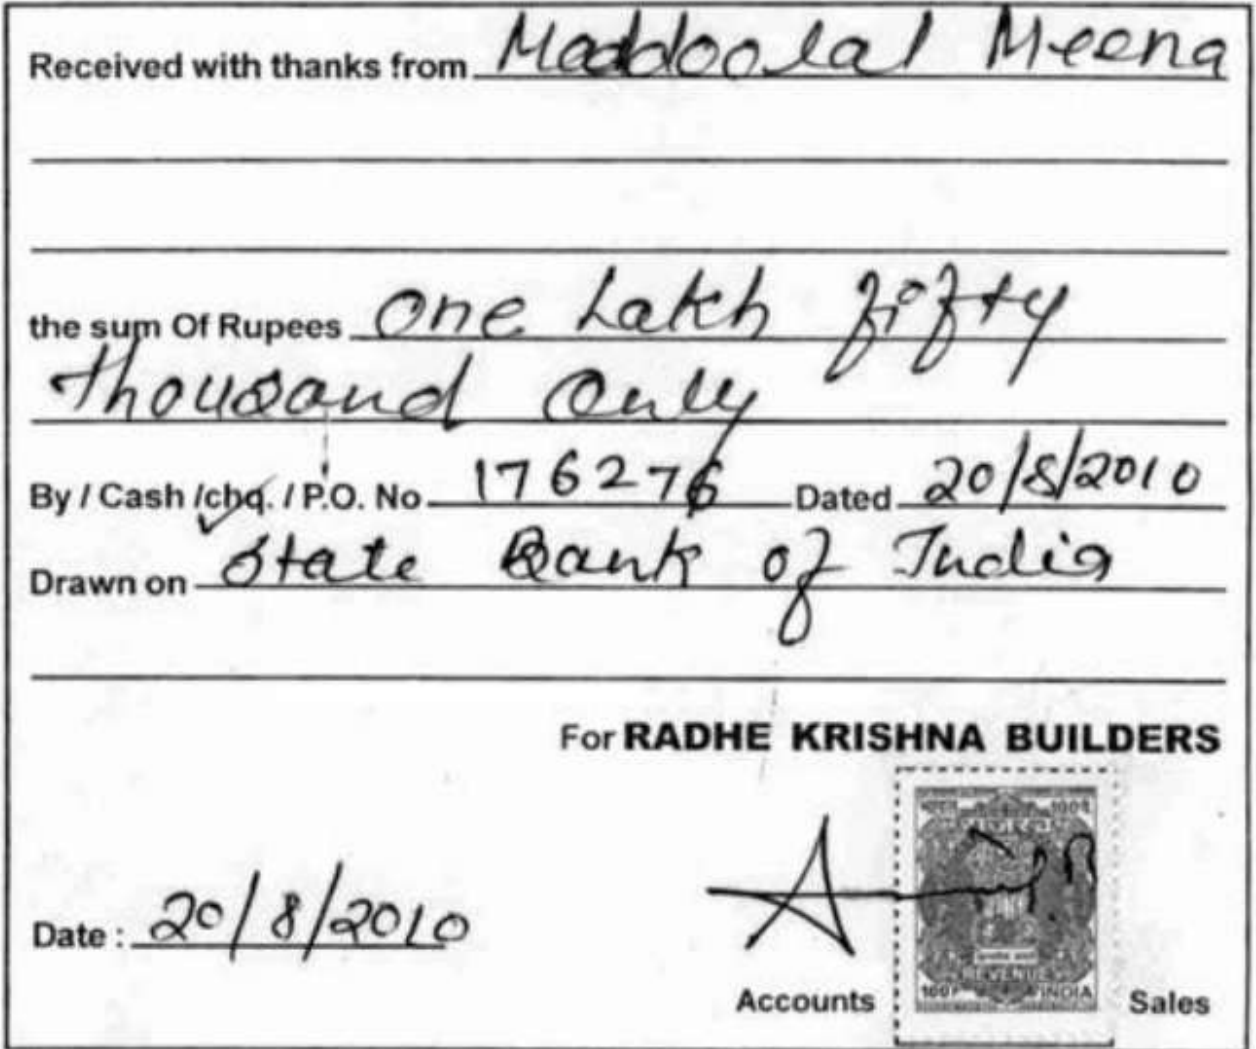 Received with thanks from Maddoolal Meena
the sum Of Rupees One Lakh fifty
thousand Only
By / Cash /chq. / P.O. No 176276 Dated 20/8/2010
Drawn on State Bank of India
For RADHE KRISHNA BUILDERS
Date : 20/8/2010
REVENUE
INDIA
Accounts Sales